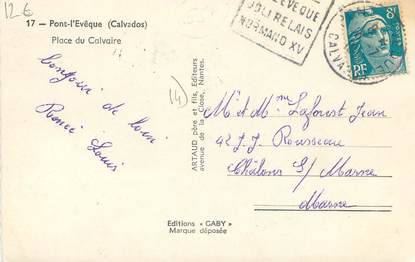 12 €
17 — Pont-l'Evêque (Calvados)
Place du Calvaire
L'EVEQUE
JOLI RELAIS
NORMAND XV
8F
RF
CALVA
de loin
Louis
ARTAUD père et fils, Editeurs
avenue de la Close, Nantes.
(4)
M. et Mme Laforest Jean
42 J.J. Rousseau
Châlons S/ Marne
Marne
Editions « GABY »
Marque déposée